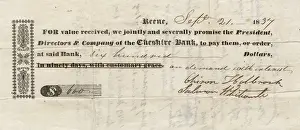 Keene, Sept. 21. 1837
FOR value received, we jointly and severally promise the President,
Directors & Company of the Cheshire Bank, to pay them, or order,
at said Bank, Six hundred Dollars,
In ninety days, with customary grace. on demand with interest
$ 600